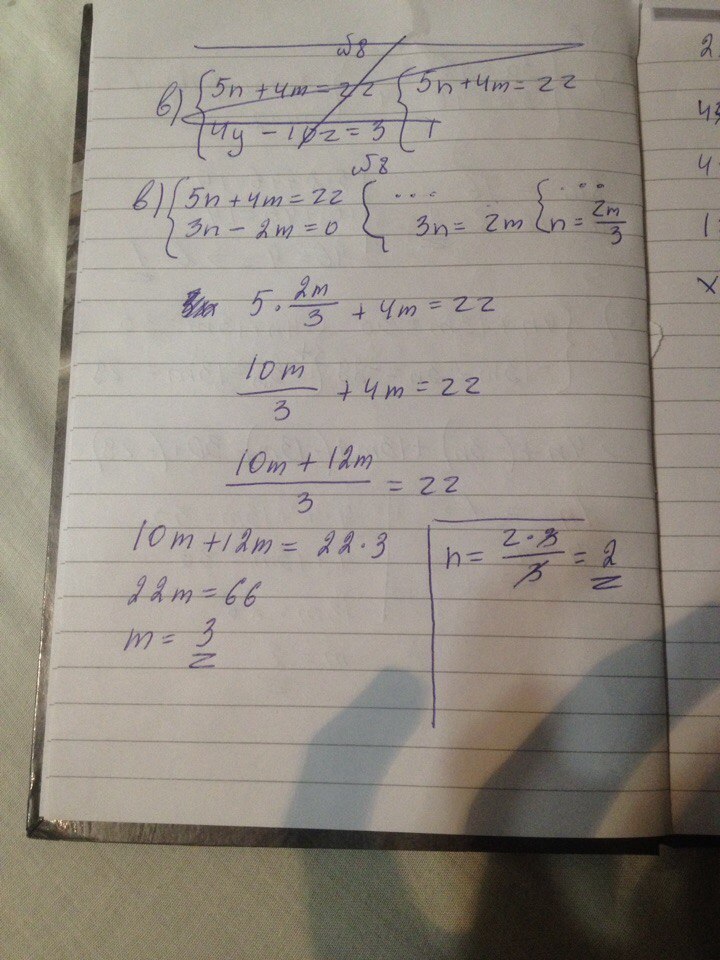 №8
в) { 5n + 4m = 22 { 5n + 4m = 22
{ 4y - 10z = 3 { 1
№8
в) { 5n + 4m = 22 { ... { ...
{ 3n - 2m = 0 { 3n = 2m { n = 2m/3
5 · 2m/3 + 4m = 22
10m/3 + 4m = 22
(10m + 12m)/3 = 22
10m + 12m = 22 · 3
22m = 66
m = 3
n = (2 · 3)/3 = 2
2
4
1
x